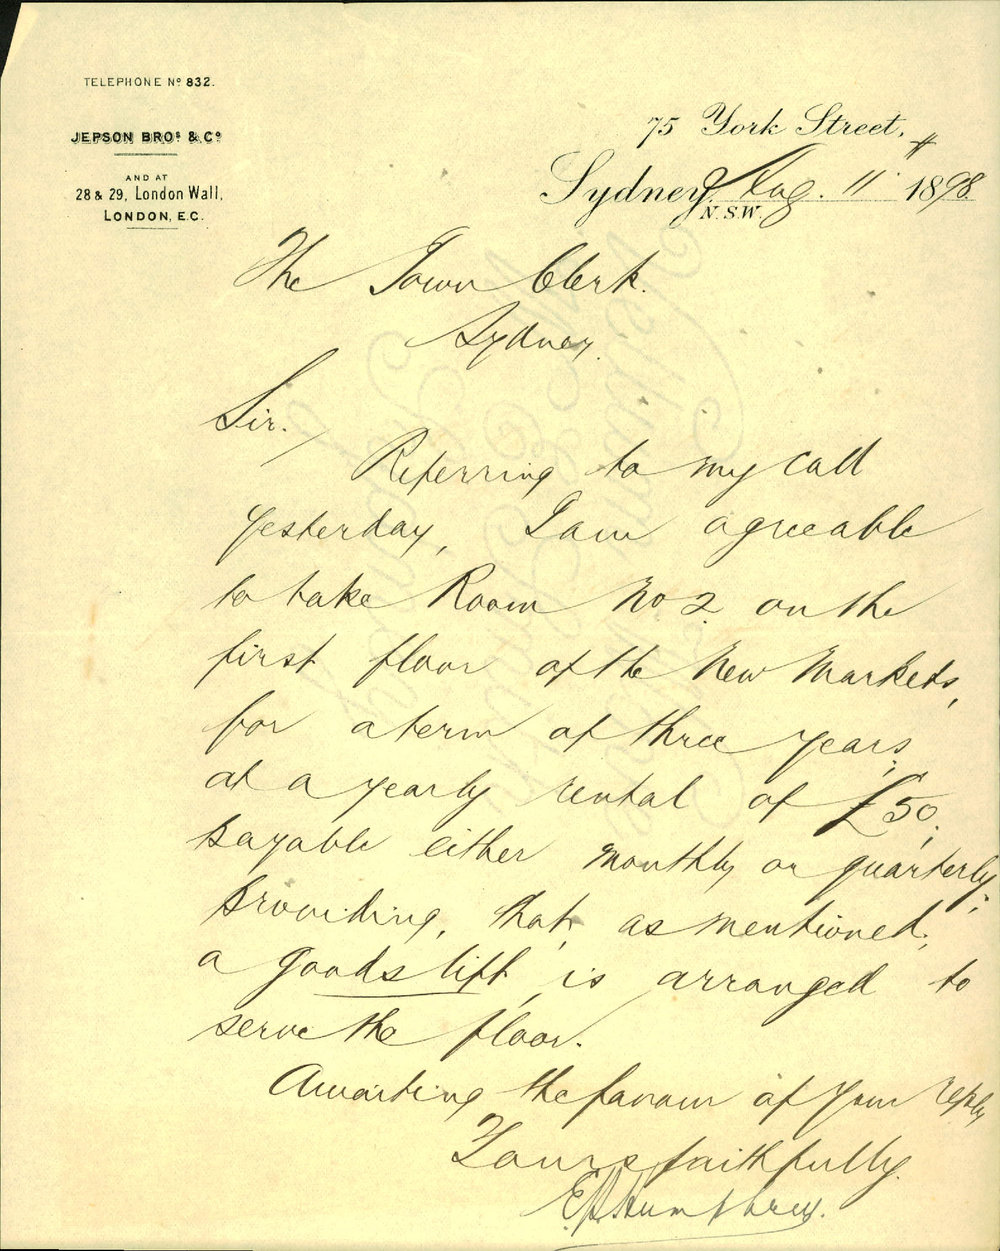 TELEPHONE Nº 832.
JEPSON BROS & Cº
AND AT
28 & 29, London Wall,
LONDON, E.C.
75 York Street,
Sydney, Aug. 11th 1898
N.S.W.
The Town Clerk.
Sydney.
Sir.
Referring to my call
yesterday, I am agreeable
to take Room No 2 on the
first floor of the New Markets,
for a term of three years,
at a yearly rental of £50,
payable either monthly or quarterly;
providing, that, as mentioned,
a goods lift, is arranged to
serve the floor.
Awaiting the favour of your reply
Yours faithfully.
Humphrey.